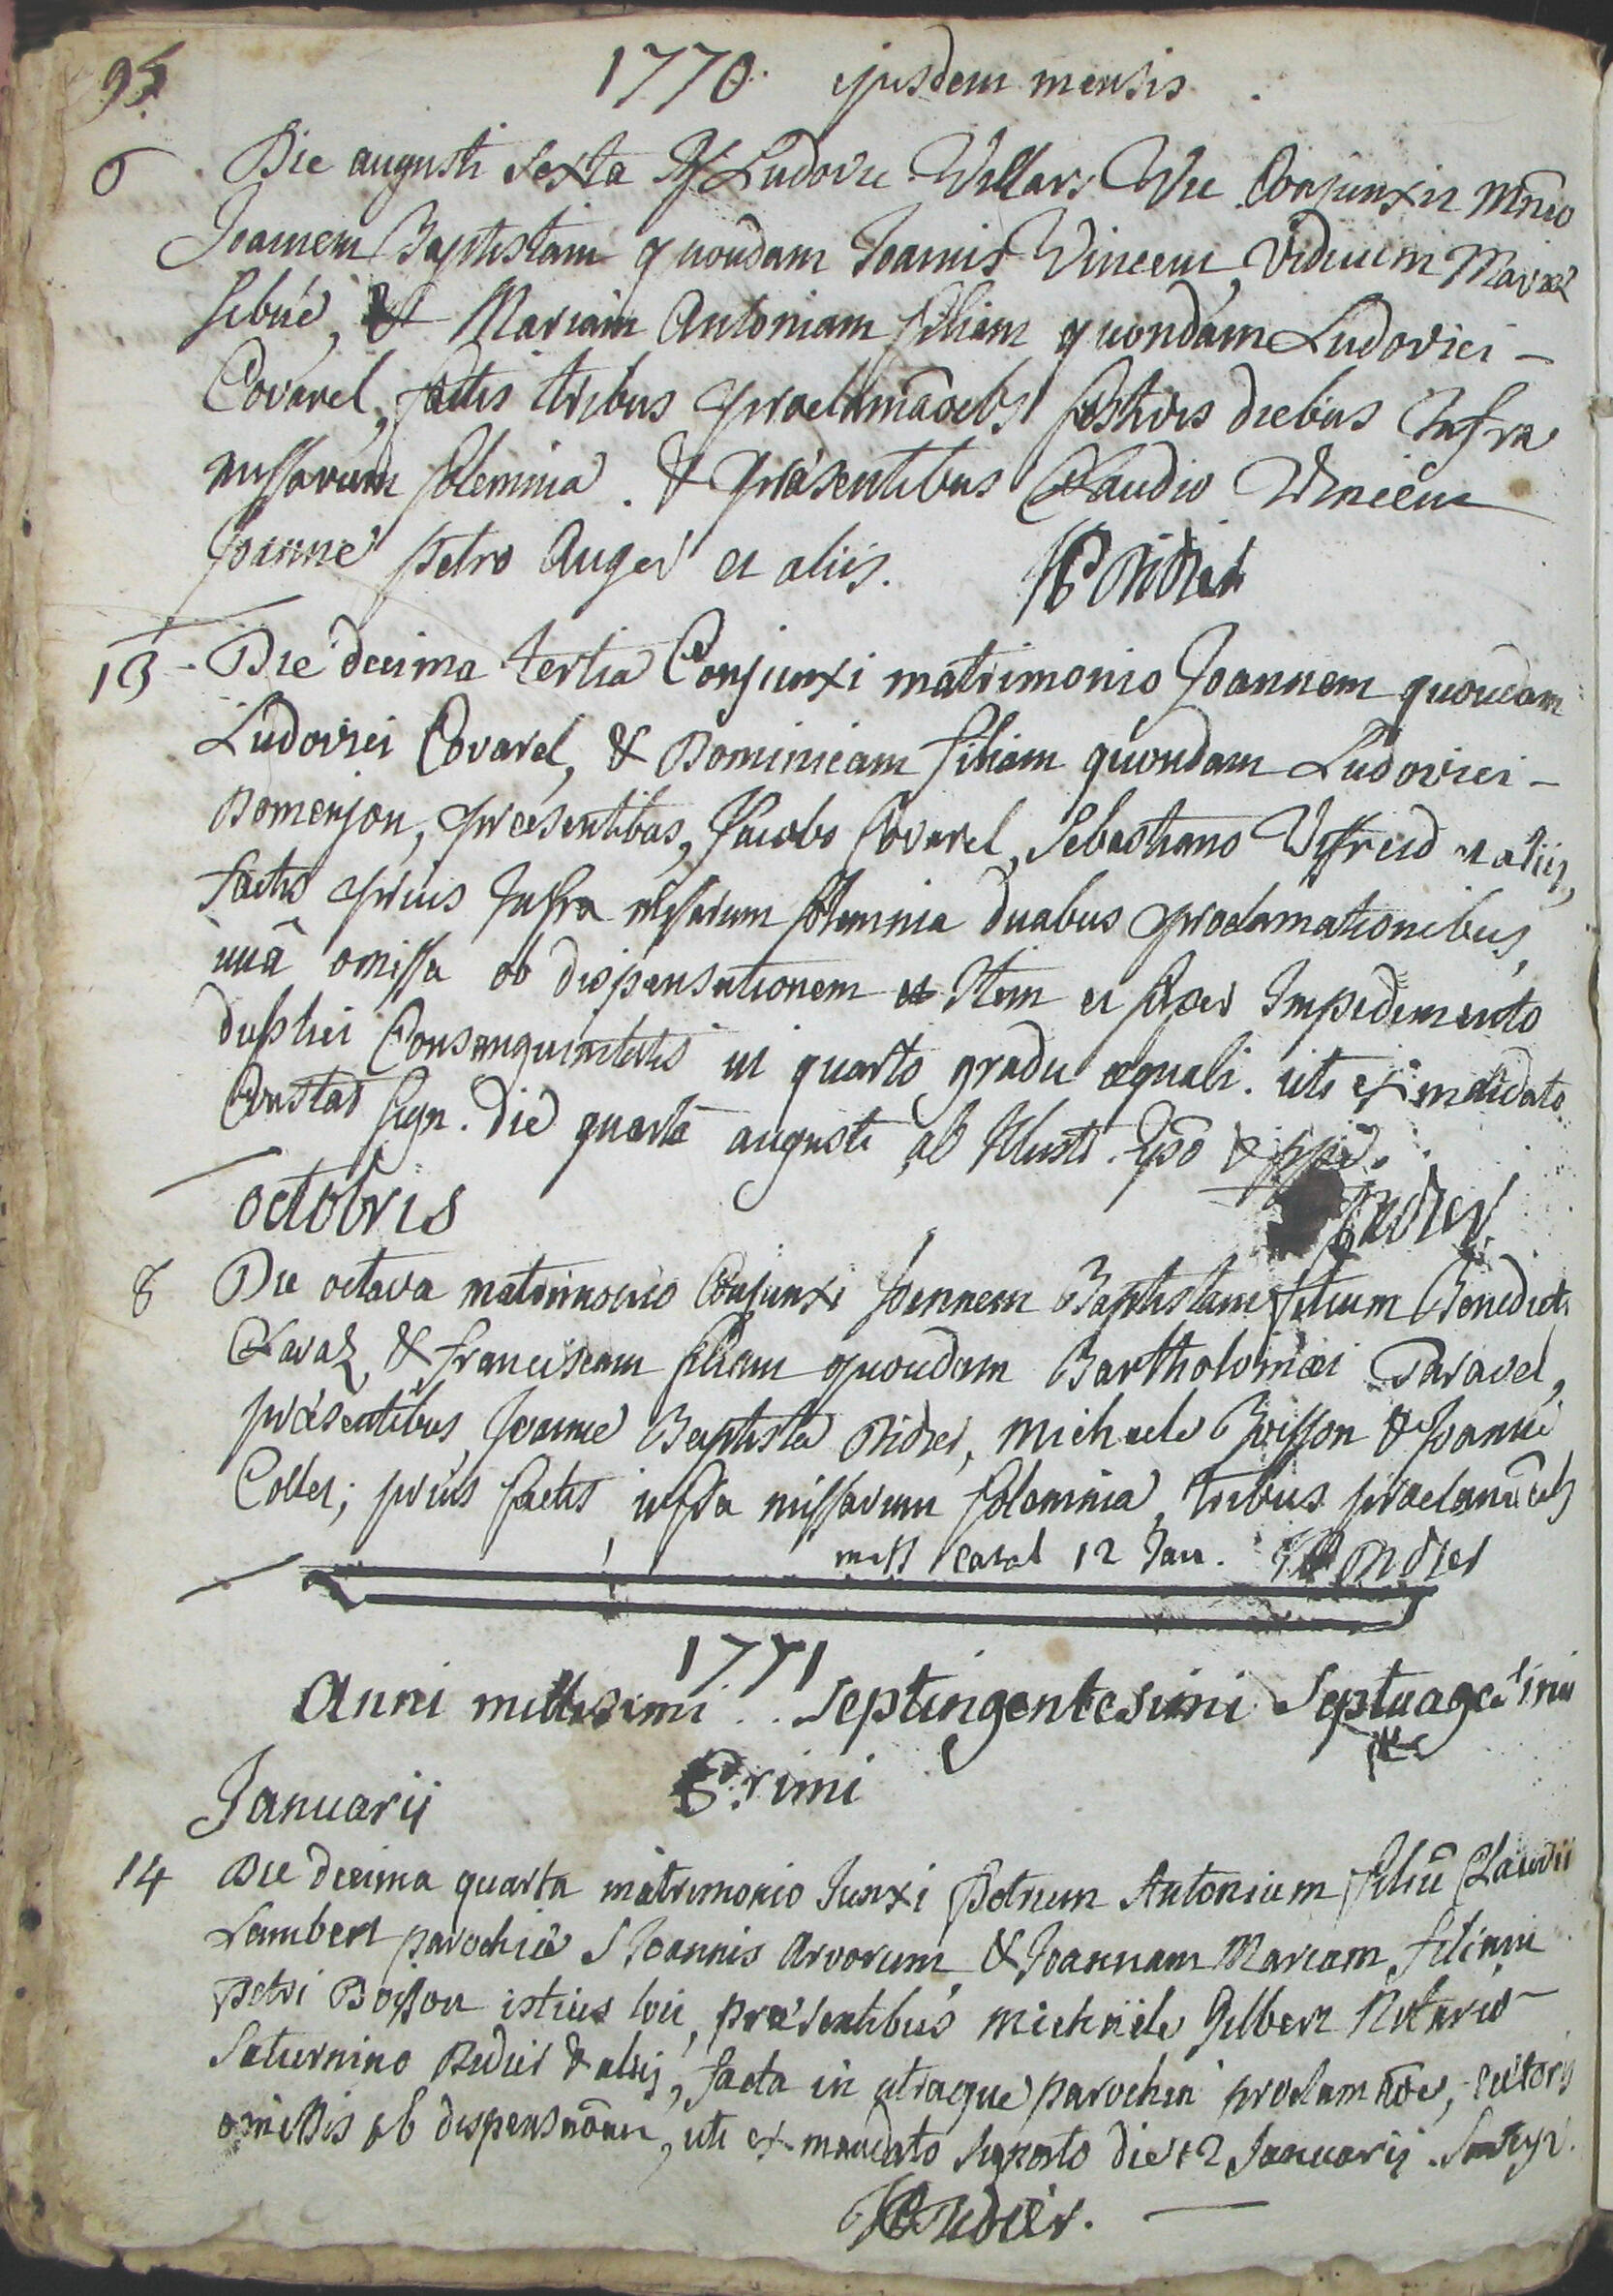 95.
1770. ejusdem mensis
6 Die augusti sexta Ludovic Villars Vic Conjunxit mrio
Joannem Baptistam quondam Joannis Vincent, viduum Mariæ
Sibué, & Mariam Antoniam filiam quondam Ludovici -
Covarel, factis tribus proclamãoebs festivis diebus Infra
missarum solemnia. & præsentibus Claudio Vincent
Joanne petro Auger et aliis. Didier
13 - Die decima tertia Conjunxi matrimonio Joannem quondam
Ludovici Covarel, & Dominicam filiam quondam Ludovici -
Domenjon, præsentibus, Jacobo Covarel, Sebastiano Viffreid et aliis,
factis prius Infra missarum solemnia duabus proclamationibus,
unâ omissa ob dispensationem et Item super Impedimento
duplici Consanguinitatis in quarto gradu æquali. uti ex mandato
Constat sign. die quartâ augusti ab Illust.
octobris Didier
8 Die octava matrimonio Conjunxi Joannem Baptistam filium Benedicti
Claraz, & franciscam filiam quondam Bartholomæi Taravel,
præsentibus, Joanne Baptista Didier, Michaele Boisson & Joanne
Collet; prius factis infra missarum solemnia, tribus proclamãoebs
12 Jan. Didier
1771
Anni millesimi .. Septingentesimi Septuagesimi
Primi
Januarij
14 Die decima quarta matrimonio Junxi Petrum Antonium filiũ Claudii
Lambert parochiæ S Joannis Arvorum, & Joannam Mariam filiam
petri Boisson istius loci, præsentibus Michaële Gilbert Notario
Saturnino Didier & aliis, facta in utraque parochia proclamãõe, cæteris
omissis ob dispensãõem, uti ex mandato signato die 12 Januarij.
Didier.